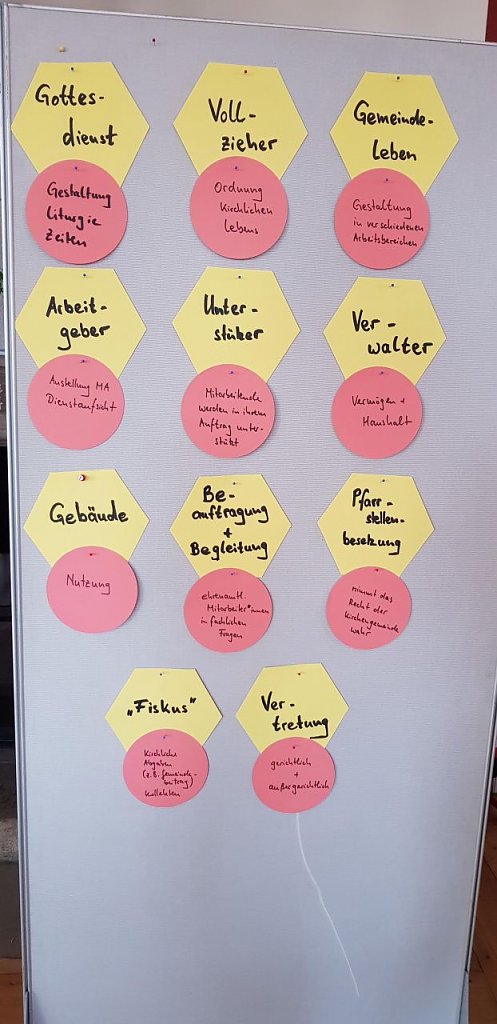 Gottes-
dienst
Gestaltung
Liturgie
Zeiten
Voll-
zieher
Ordnung
Kirchlichen
Lebens
Gemeinde-
Leben
Gestaltung
in verschiedenen
Arbeitsbereichen
Arbeit-
geber
Anstellung MA
Dienstaufsicht
Unter-
stüker
Mitarbeitende
werden in ihrem
Auftrag unter-
stützt
Ver-
walter
Vermögen +
Haushalt
Gebäude
Nutzung
Be-
auftragung
+
Begleitung
ehrenamtl.
Mitarbeiter*innen
in fachlichen
Fragen
Pfarr-
stellen-
besetzung
nimmt das
Recht der
Kirchengemeinde
wahr
„Fiskus"
Kirchliche
Abgaben
(z.B. Gemeinde-
beitrag)
Kollekten
Ver-
tretung
gerichtlich
+
außergerichtlich